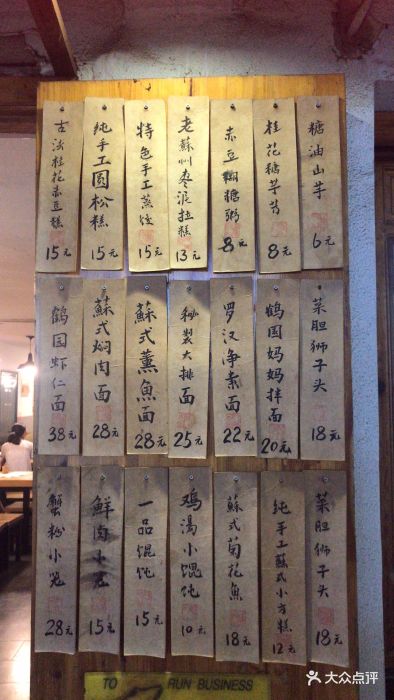 古法桂花赤豆糕
15元
纯手工圆松糕
15元
特色手工蒸饺
15元
老蘇州枣泥拉糕
13元
赤豆糊糖粥
8元
桂花糖芋艿
8元
糖油山芋
6元
鹤园虾仁面
38元
蘇式焖肉面
28元
蘇式薰魚面
28元
秘製大排面
25元
罗汉净素面
22元
鹤园妈妈拌面
20元
菜胆狮子头
18元
蟹粉小笼
28元
鲜肉小笼
15元
一品馄饨
15元
鸡湯小馄饨
10元
蘇式菊花魚
18元
纯手工蘇式小方糕
12元
菜胆狮子头
18元
TO RUN BUSINESS
大众点评